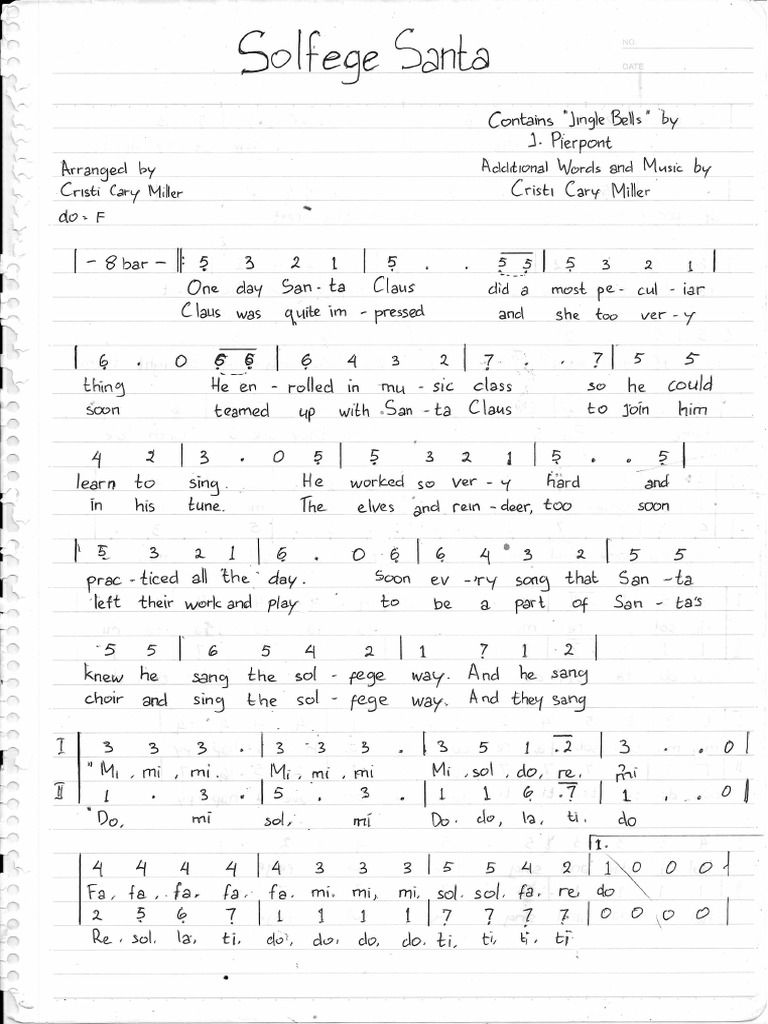 Solfege Santa
NO.
DATE
Contains "Jingle Bells" by
J. Pierpont
Arranged by
Additional Words and Music by
Cristi Cary Miller
Cristi Cary Miller
do = F
| - 8 bar - ||: 5̣ 3 2 1 | 5̣ . . 5̣ 5̣ | 5̣ 3 2 1 |
One day San - ta Claus did a most pe - cul - iar
Claus was quite im - pressed and she too ver - y
6̣ . 0 6̣ 6̣ | 6̣ 4 3 2 | 7̣ . . 7̣ | 5 5
thing He en - rolled in mu - sic class so he could
soon teamed up with San - ta Claus to join him
4 2 | 3 . 0 5̣ | 5̣ 3 2 1 | 5̣ . . 5̣ |
learn to sing. He worked so ver - y hard and
in his tune. The elves and rein - deer, too soon
| 5̣ 3 2 1 | 6̣ . 0 6̣ | 6̣ 4 3 2 | 5 5
prac - ticed all the day. Soon ev - 'ry song that San - ta
left their work and play to be a part of San - ta's
5 5 | 6 5 4 2 | 1 7̣ 1 2 |
knew he sang the sol - fege way. And he sang
choir and sing the sol - fege way. And they sang
I | 3 3 3 . | 3 3 3 . | 3 5 1 .2 | 3 . . 0 |
"Mi, mi, mi. Mi, mi, mi Mi, sol, do, re, mi
II | 1 . 3 . | 5 . 3 . | 1 1 6̣ .7̣ | 1 . . 0 ||
"Do, mi sol, mi Do. do, la, ti. do
1.
| 4 4 4 4 | 4 3 3 3 | 5 5 4 2 | 1 0 0 0 |
Fa, fa, fa, fa, fa, mi, mi, mi, sol. sol. fa, re, do
2 5̣ 6̣ 7̣ | 1 1 1 1 | 7̣ 7̣ 7̣ 7̣ | 0 0 0 0 |
Re, sol, la, ti, do, do, do, do, ti, ti, ti, ti